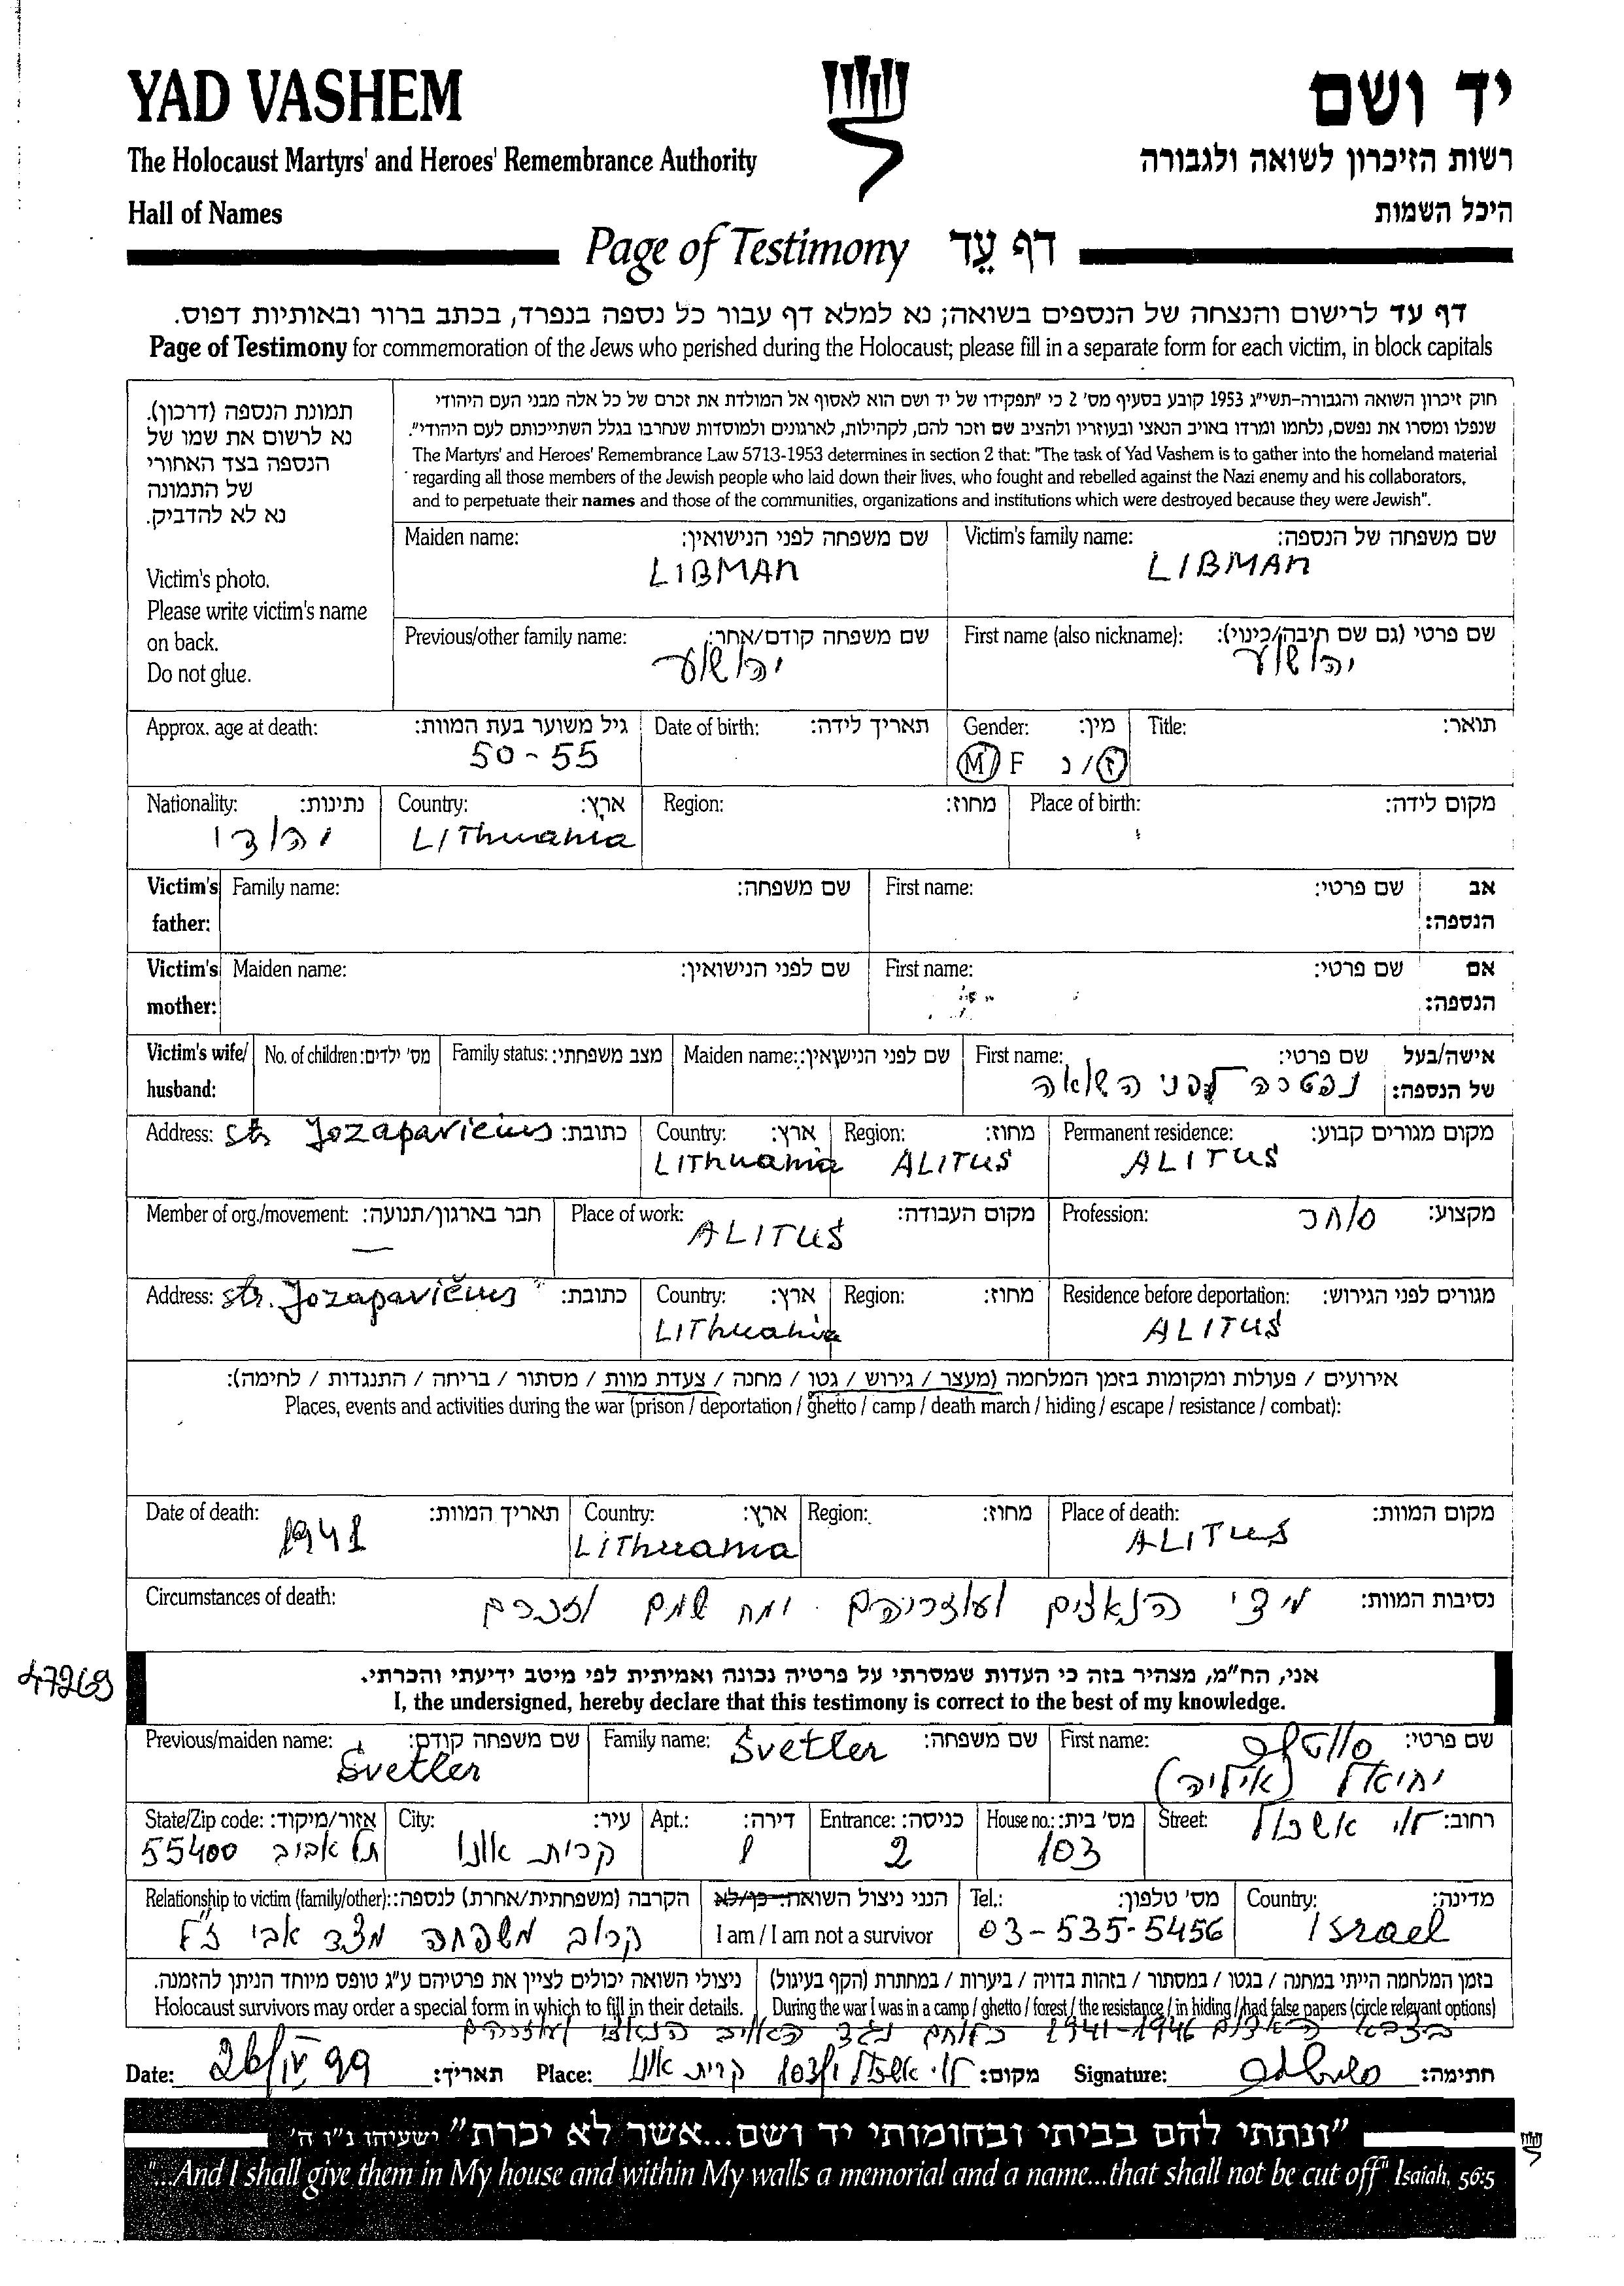 YAD VASHEM
יד ושם
The Holocaust Martyrs' and Heroes' Remembrance Authority
רשות הזיכרון לשואה ולגבורה
Hall of Names
היכל השמות
Page of Testimony דף עֵד
דף עד לרישום והנצחה של הנספים בשואה; נא למלא דף עבור כל נספה בנפרד, בכתב ברור ובאותיות דפוס.
Page of Testimony for commemoration of the Jews who perished during the Holocaust; please fill in a separate form for each victim, in block capitals
תמונת הנספה (דרכון).
נא לרשום את שמו של
הנספה בצד האחורי
של התמונה
נא לא להדביק.
Victim's photo.
Please write victim's name
on back.
Do not glue.
חוק זיכרון השואה והגבורה-תשי"ג 1953 קובע בסעיף מס' 2 כי "תפקידו של יד ושם הוא לאסוף אל המולדת את זכרם של כל אלה מבני העם היהודי
שנפלו ומסרו את נפשם, נלחמו ומרדו באויב הנאצי ובעוזריו ולהציב שם וזכר להם, לקהילות, לארגונים ולמוסדות שנחרבו בגלל השתייכותם לעם היהודי".
The Martyrs' and Heroes' Remembrance Law 5713-1953 determines in section 2 that: "The task of Yad Vashem is to gather into the homeland material
regarding all those members of the Jewish people who laid down their lives, who fought and rebelled against the Nazi enemy and his collaborators,
and to perpetuate their names and those of the communities, organizations and institutions which were destroyed because they were Jewish".
Maiden name: שם משפחה לפני הנישואין: Victim's family name: שם משפחה של הנספה:
LIBMAN LIBMAN
Previous/other family name: שם משפחה קודם/אחר: First name (also nickname): שם פרטי (גם שם חיבה/כינוי):
יהושע יהושע
Approx. age at death: גיל משוער בעת המוות: Date of birth: תאריך לידה: Gender: מין: Title: תואר:
50-55 M F ז/נ
Nationality: נתינות: Country: ארץ: Region: מחוז: Place of birth: מקום לידה:
יהודי LIThuania
Victim's father: Family name: שם משפחה: First name: שם פרטי: אב הנספה:
Victim's mother: Maiden name: שם לפני הנישואין: First name: שם פרטי: אם הנספה:
Victim's wife/husband: No. of children: מס' ילדים: Family status: מצב משפחתי: Maiden name: שם לפני הנישואין: First name: שם פרטי: אישה/בעל של הנספה:
נפטרה לפני השואה
Address: כתובת: Country: ארץ: Region: מחוז: Permanent residence: מקום מגורים קבוע:
str Jozapavičius LIThuania ALITUS ALITUS
Member of org./movement: חבר בארגון/תנועה: Place of work: מקום העבודה: Profession: מקצוע:
— ALITUS סוחר
Address: כתובת: Country: ארץ: Region: מחוז: Residence before deportation: מגורים לפני הגירוש:
str. Jozapavičius LIThuania ALITUS
אירועים / פעולות ומקומות בזמן המלחמה (מעצר / גירוש / גטו / מחנה / צעדת מוות / מסתור / בריחה / התנגדות / לחימה):
Places, events and activities during the war (prison / deportation / ghetto / camp / death march / hiding / escape / resistance / combat):
Date of death: תאריך המוות: Country: ארץ: Region: מחוז: Place of death: מקום המוות:
1941 LiThuania ALITUS
Circumstances of death: נסיבות המוות:
מידי הנאצים ועוזריהם. ימח שמם וזכרם
47269
אני, הח"מ, מצהיר בזה כי העדות שמסרתי על פרטיה נכונה ואמיתית לפי מיטב ידיעתי והכרתי.
I, the undersigned, hereby declare that this testimony is correct to the best of my knowledge.
Previous/maiden name: שם משפחה קודם: Family name: שם משפחה: First name: שם פרטי:
Svetler Svetler
יחיאל (איליה)
State/Zip code: אזור/מיקוד: City: עיר: Apt.: דירה: Entrance: כניסה: House no.: מס' בית: Street: רחוב:
55400 תל אביב קרית אונו 1 2 103 לוי אשכול
Relationship to victim (family/other): הקרבה (משפחתית/אחרת) לנספה: הנני ניצול השואה: כן/לא Tel.: מס' טלפון: Country: מדינה:
קרוב משפחה מצד אבי ז"ל I am / I am not a survivor 03-535-5456 Israel
בזמן המלחמה הייתי במחנה / בגטו / במסתור / בזהות בדויה / ביערות / במחתרת (הקף בעיגול) ניצולי השואה יכולים לציין את פרטיהם ע"ג טופס מיוחד הניתן להזמנה.
Holocaust survivors may order a special form in which to fill in their details. During the war I was in a camp / ghetto / forest / the resistance / in hiding / had false papers (circle relevant options)
בצבא האדום 1941-1946 כלוחם נגד האויב הנאצי ועוזריהם
Date: 26/IV 99 תאריך: Place: לוי אשכול 103/1 קרית אונו מקום: Signature: חתימה:
"ונתתי להם בביתי ובחומותי יד ושם...אשר לא יכרת" ישעיהו נ"ו ה'
"...And I shall give them in My house and within My walls a memorial and a name...that shall not be cut off" Isaiah, 56:5